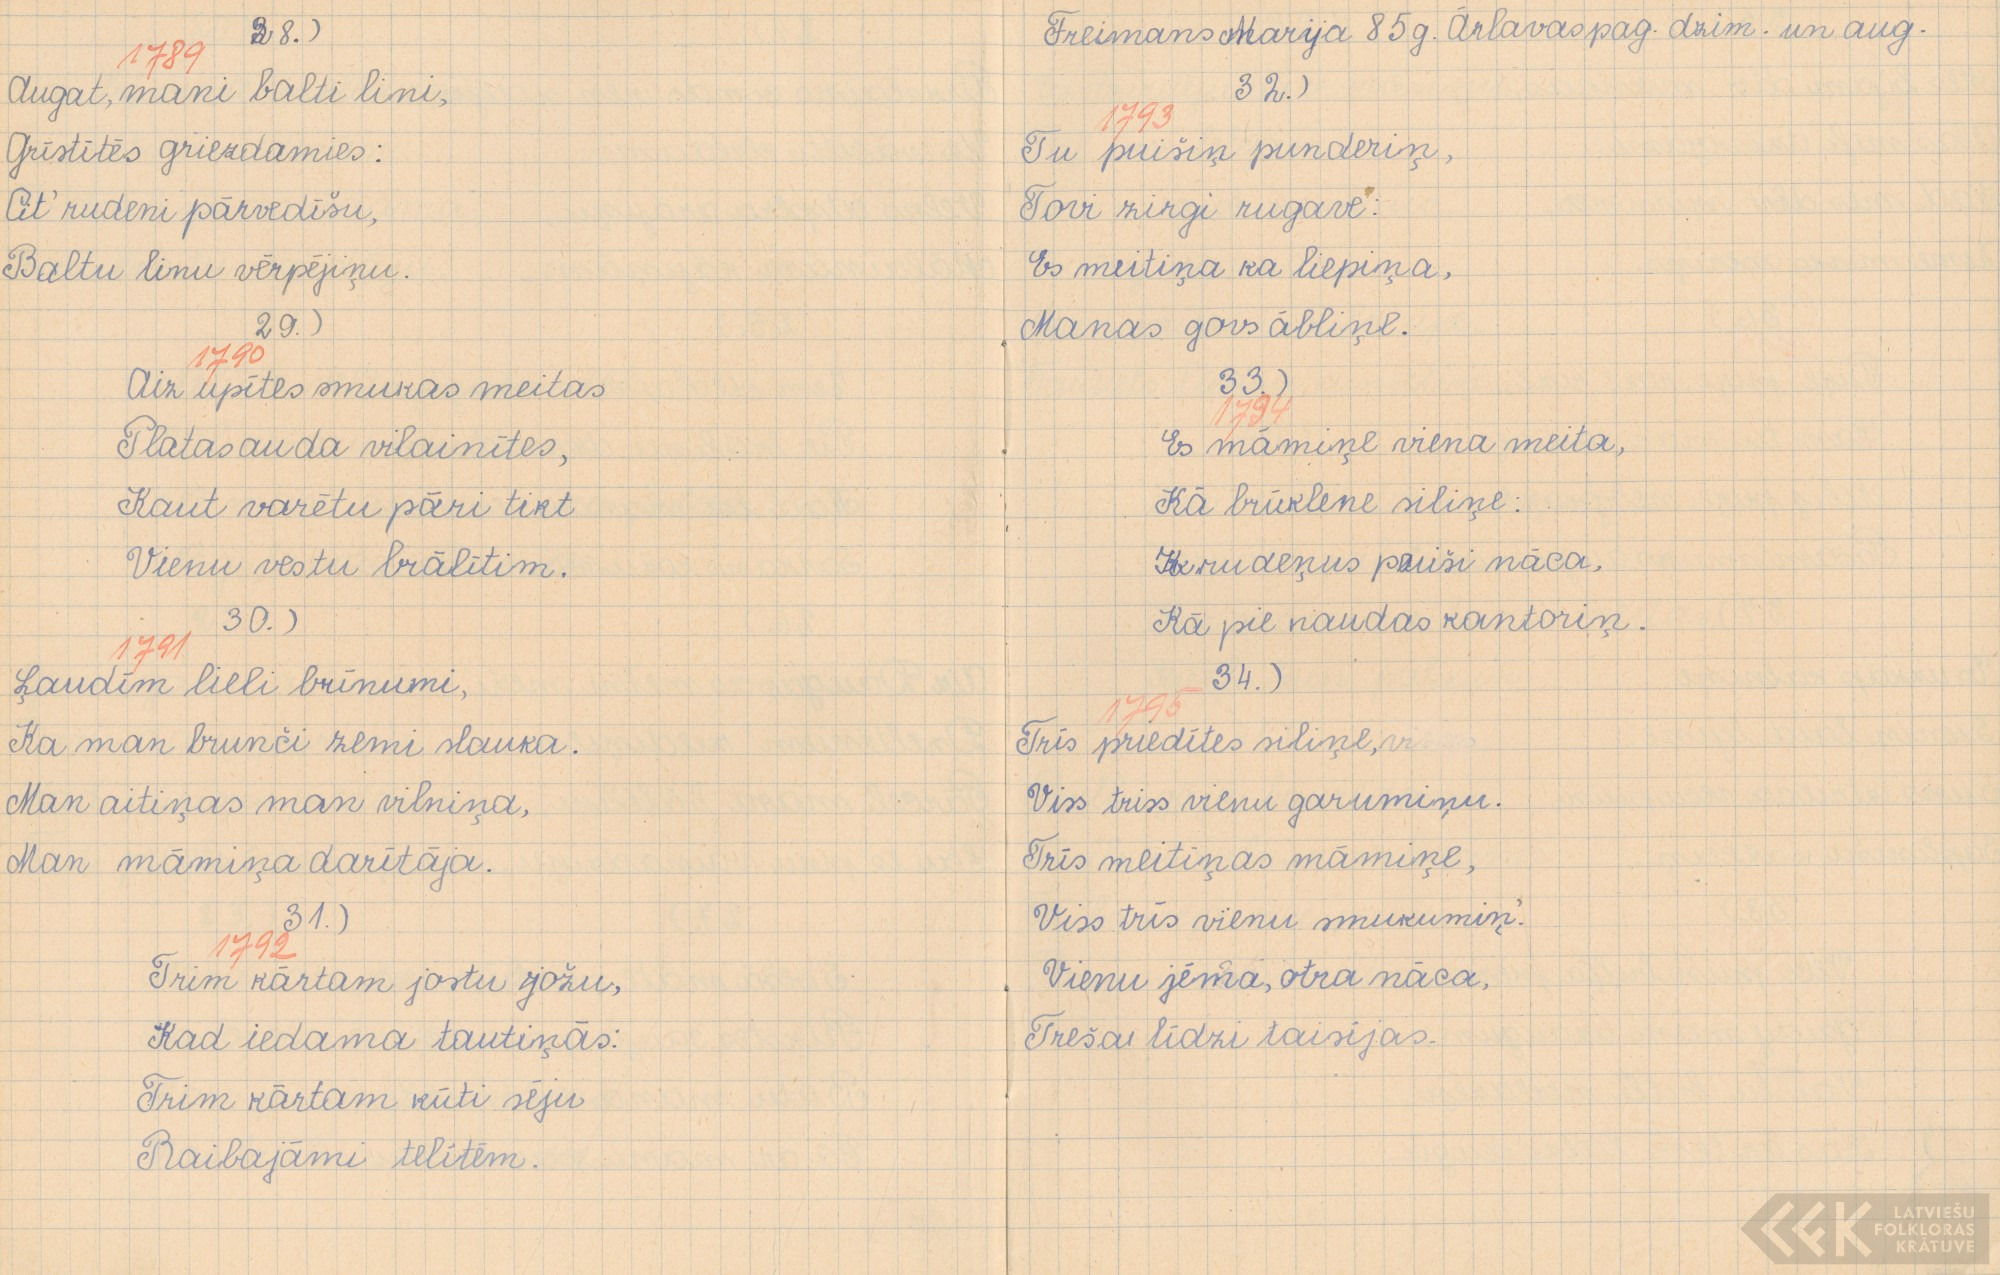 28.)
1789
Augat, mani balti lini,
Grīstītēs griezdamies:
Cit' rudeni pārvedīšu,
Baltu linu vērpējiņu.
29.)
1790
Aiz upītes smukas meitas
Platas auda vilainītes,
Kaut varētu pāri tikt
Vienu vestu brālītim.
30.)
1791
Ļaudīm lieli brīnumi,
Ka man brunči zemi slauka.
Man aitiņas man vilniņa,
Man māmiņa darītāja.
31.)
1792
Trim kārtam jostu jožu,
Kad iedama tautiņās:
Trim kārtam kūti sēju
Raibajāmi telītēm.
Freimans Marija 85g. Ārlavas pag. dzim. un aug.
32.)
1793
Tu puišiņ punderiņ,
Tovi zirgi rugave:
Es meitiņa ka liepiņa,
Manas govs ābliņe.
33.)
1794
Es māmiņe viena meita,
Kā brūklene siliņe:
rudeņus puiši nāca,
Kā pie naudas kantoriņ.
34.)
1795
Trīs priedītes siliņe,
Viss triss vienu garumiņu.
Trīs meitiņas māmiņe,
Viss trīs vienu smukumiņ'.
Vienu jēma, otra nāca,
Trešai līdzi taisījas.
LATVIEŠU
FOLKLORAS
KRĀTUVE